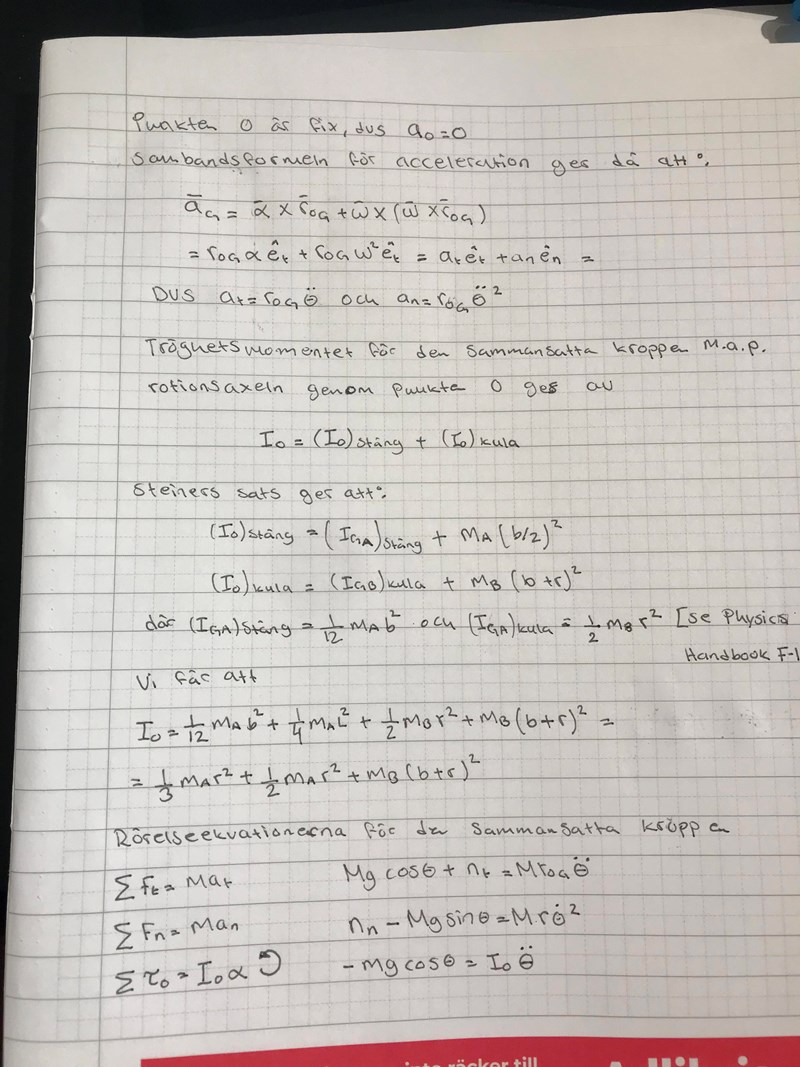 Punkten O är fix, dus a_O = 0
Sambandsformeln för acceleration ges då att:
ā_G = ᾱ × r̄_OG + ω̄ × (ω̄ × r̄_OG)
= r_OG α ê_t + r_OG ω² ê_t = a_t ê_t + a_n ê_n =
DVS a_t = r_OG θ̈ och a_n = r_OG θ̈²
Tröghetsmomentet för den sammansatta kroppen M.a.p.
rotionsaxeln genom punkte O ges av
I_O = (I_O)stång + (I_O)kula
Steiners sats ger att:
(I_O)stång = (I_GA)stång + m_A (b/2)²
(I_O)kula = (I_GB)kula + m_B (b+r)²
där (I_GA)stång = 1/12 m_A b² och (I_GA)kula = 1/2 m_B r² [se Physics
Handbook F-1
Vi får att
I_O = 1/12 m_A b² + 1/4 m_A L² + 1/2 m_B r² + m_B (b+r)² =
= 1/3 m_A r² + 1/2 m_A r² + m_B (b+r)²
Rörelseekvationerna för den sammansatta kroppen
∑ F_t = M a_t Mg cosθ + n_t = M r_OG θ̈
∑ F_n = M a_n n_n − Mg sinθ = M r θ̇²
∑ τ_O = I_O α ↺ −mg cosθ = I_O θ̈